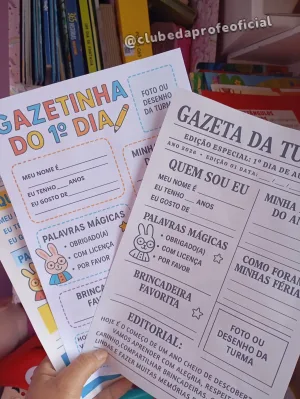 @clubedaprofeoficial
GAZETINHA
DO 1º DIA
FOTO OU
DESENHO
DA TURMA
MEU NOME É
EU TENHO ANOS
EU GOSTO DE
MINHA
PALAVRAS MÁGICAS
• OBRIGADO(A)
• COM LICENÇA
• POR FAVOR
BRINCADEIRA
FAVORITA
MEU
EU TE
EU GO
GAZETA DA TU
EDIÇÃO ESPECIAL: 1º DIA DE AU
ANO 2026 • EDIÇÃO 01 DATA:
QUEM SOU EU
MEU NOME É
EU TENHO ANOS
EU GOSTO DE
MINHA
DO A
PALAVRAS MÁGICAS
• OBRIGADO(A)
• COM LICENÇA
• POR FAVOR
COMO FORAM
MINHAS FÉRIA
BRINCADEIRA
FAVORITA
FOTO OU
DESENHO DA
TURMA
EDITORIAL:
HOJE É O COMEÇO DE UM ANO CHEIO DE DESCOBER
VAMOS APRENDER COM ALEGRIA, RESPEIT
CARINHO, COMPARTILHAR BRINCADEIRAS,
LINDAS E FAZER MUITAS MEMÓRIAS